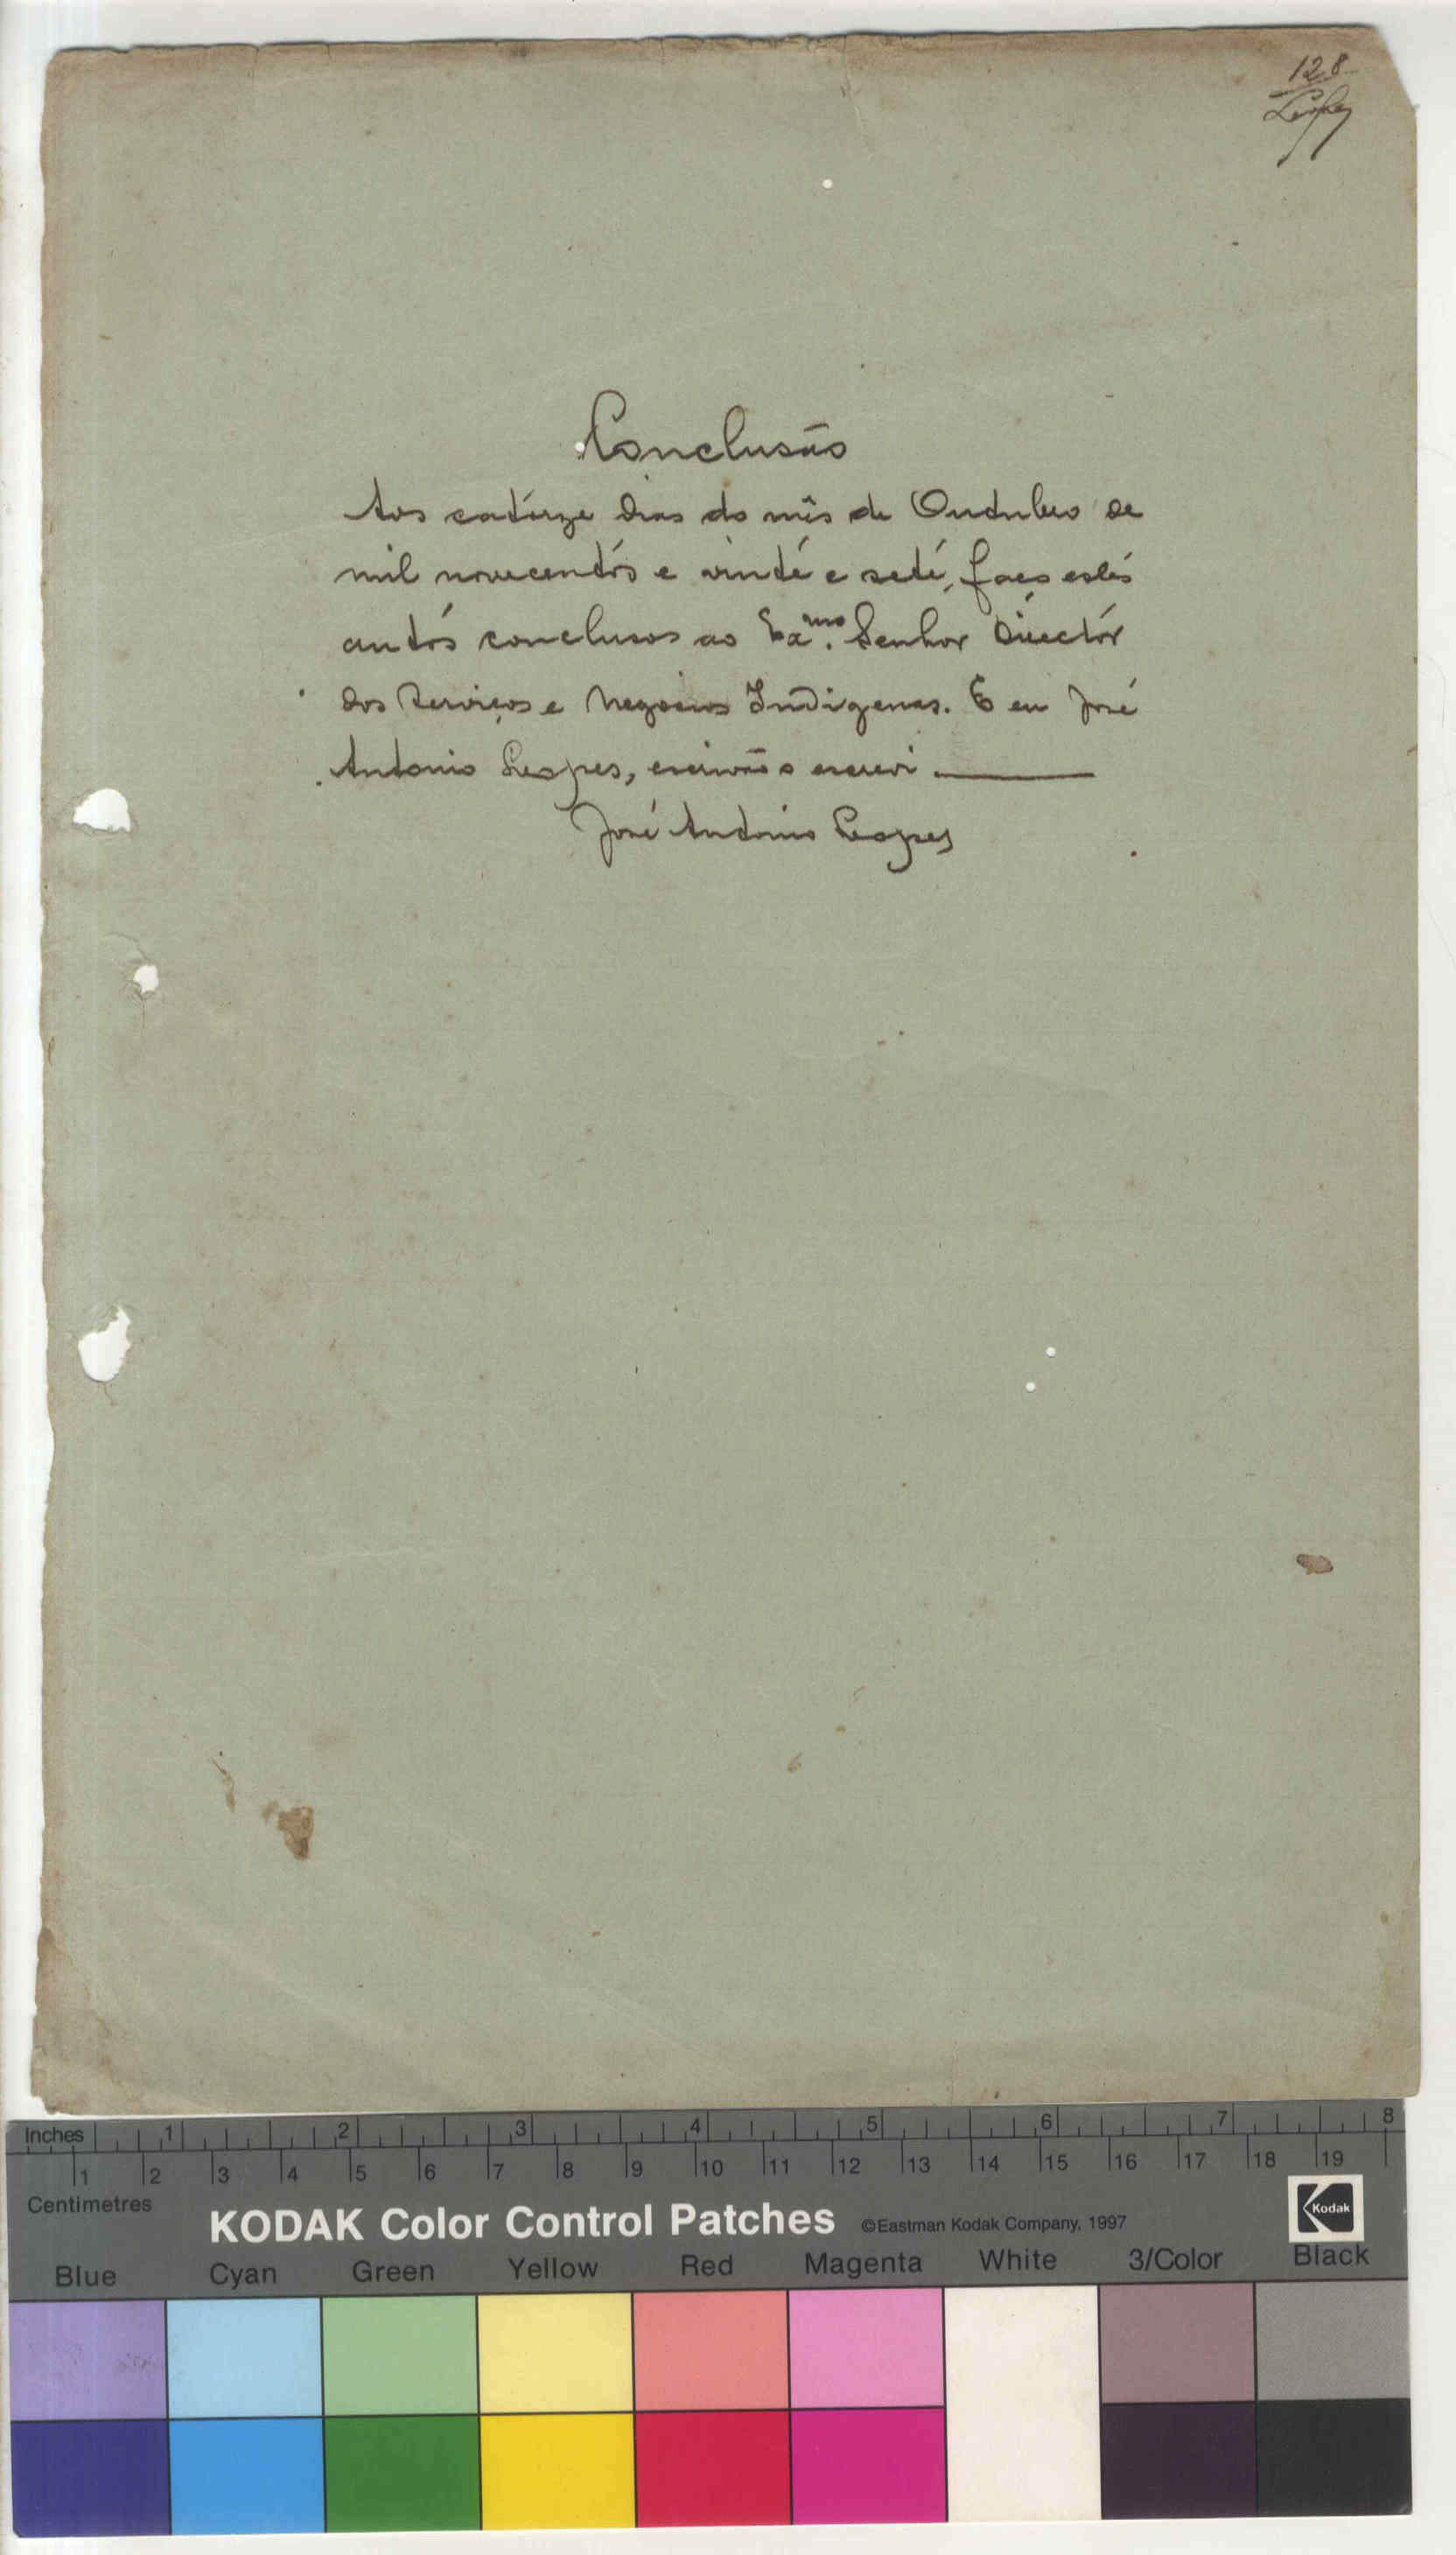 128
Lopes
Conclusão
Aos catorze dias do mês de Outubro de
mil novecentos e vinte e sete, faço estes
autos conclusos ao Exmo. Senhor Directôr
dos Serviços e Negocios Indigenas. E eu José
Antonio Lopes, escrivão o escrevi.
José Antonio Lopes
Inches 1 2 3 4 5 6 7 8
1 2 3 4 5 6 7 8 9 10 11 12 13 14 15 16 17 18 19
Centimetres
KODAK Color Control Patches ©Eastman Kodak Company, 1997 Kodak
Blue Cyan Green Yellow Red Magenta White 3/Color Black